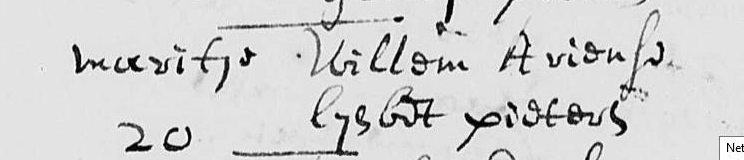 maritje Willem Ariense
20 lysbet pieters
Net